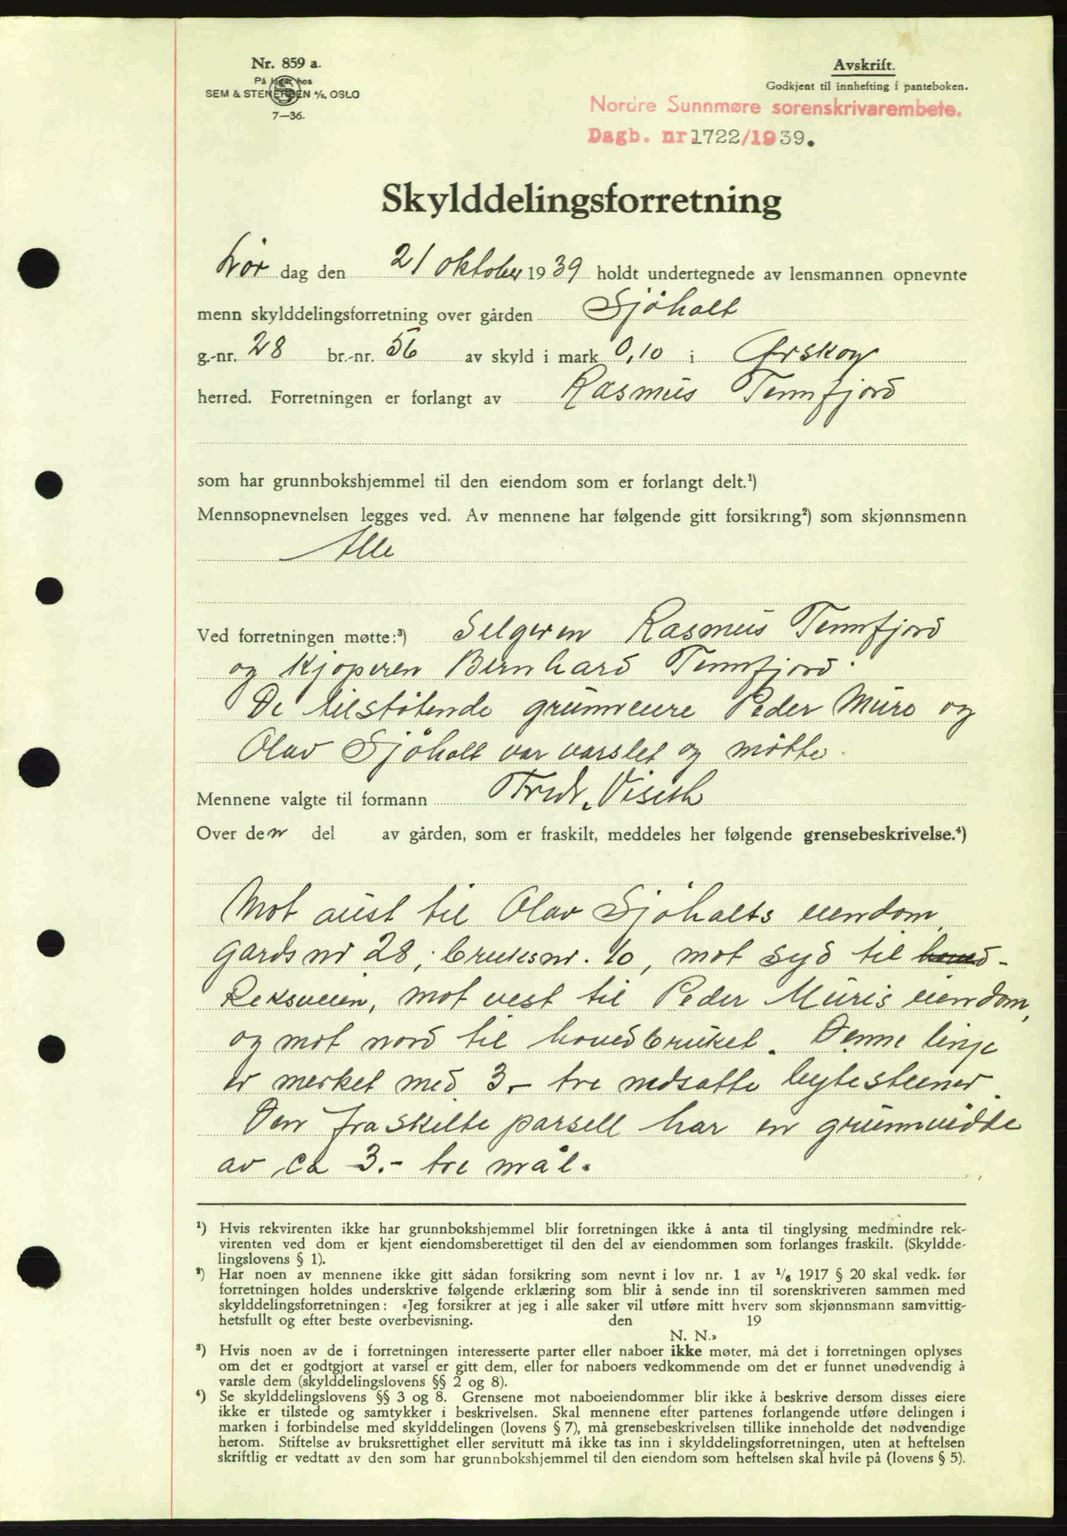 Nr. 859 a.
På lager hos
SEM & STENERSEN A/S, OSLO
7—36.
Avskrift.
Godkjent til innhefting i panteboken.
Nordre Sunnmøre sorenskrivarembete.
Dagb. nr 1722/1939.
Skylddelingsforretning
Lør dag den 21 oktober 1939 holdt undertegnede av lensmannen opnevnte
menn skylddelingsforretning over gården Sjöholt
g.-nr. 28 br.-nr. 56 av skyld i mark 0,10 i Ørskog
herred. Forretningen er forlangt av Rasmus Tennfjord
som har grunnbokshjemmel til den eiendom som er forlangt delt.¹)
Mennsopnevnelsen legges ved. Av mennene har følgende gitt forsikring²) som skjønnsmenn
Alle
Ved forretningen møtte:³) Selgeren Rasmus Tennfjord
og Kjøperen Bernhard Tennfjord.
De tilstøtende grunneiere Peder Muri og
Olav Sjöholt var varslet og møtte.
Mennene valgte til formann Fredr. Viset
Over den del av gården, som er fraskilt, meddeles her følgende grensebeskrivelse.⁴)
Mot aust til Olav Sjöholts eiendom,
gardsnr 28, bruksnr. 10, mot syd til hoved-
Riksveien, mot vest til Peder Muris eiendom,
og mot nord til hovedbruket. Denne linje
er merket med 3.- tre nedsatte bytesteiner.
Den fraskilte parsell har en grunnvidde
av ca 3.- tre mål.
¹) Hvis rekvirenten ikke har grunnbokshjemmel blir forretningen ikke å anta til tinglysing medmindre rek-
virenten ved dom er kjent eiendomsberettiget til den del av eiendommen som forlanges fraskilt. (Skyldde-
lingslovens § 1).
²) Har noen av mennene ikke gitt sådan forsikring som nevnt i lov nr. 1 av ¹/₆ 1917 § 20 skal vedk. før
forretningen holdes underskrive følgende erklæring som blir å sende inn til sorenskriveren sammen med
skylddelingsforretningen: «Jeg forsikrer at jeg i alle saker vil utføre mitt hverv som skjønnsmann samvittig-
hetsfullt og efter beste overbevisning. den 19
N. N.»
³) Hvis noen av de i forretningen interesserte parter eller naboer ikke møter, må det i forretningen oplyses
om det er godtgjort at varsel er gitt dem, eller for naboers vedkommende om det er funnet unødvendig å
varsle dem (skylddelingslovens §§ 2 og 8).
⁴) Se skylddelingslovens §§ 3 og 8. Grensene mot naboeiendommer blir ikke å beskrive dersom disses eiere
ikke er tilstede og samtykker i beskrivelsen. Skal mennene efter partenes forlangende utføre delingen i
marken i forbindelse med skylddelingen (lovens § 7), må grensebeskrivelsen tillike inneholde det nødvendige
herom. Stiftelse av bruksrettighet eller servitutt må ikke tas inn i skylddelingsforretningen, uten at heftelsen
skriftlig er vedtatt av den som har grunnbokshjemmel til den eiendom som heftelsen skal hvile på (lovens § 5).